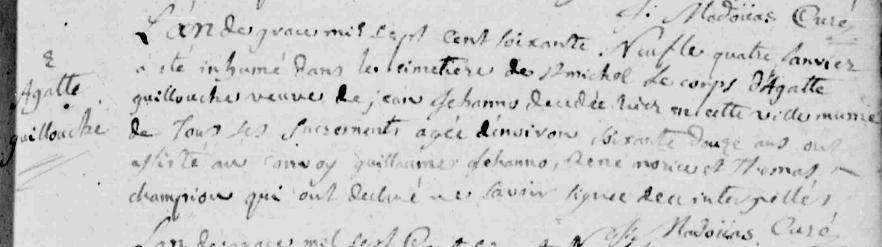 Madoüas Curé
L'an de grace mil sept cent soixante Neuf le quatre Janvier
a été inhumé dans le cimetiere de st michel Le corps d'Agatte
guillouche veuve de jean Jehanno decedée hier en cette ville munie
de Tous ses Sacrements agée d'environ soixante douze ans ont
assisté au convoy guillaume Jehanno, René norice et Thomas
champion qui ont declaré ne savoir signer de ce interpellés
Madoüas Curé
L'an de grace mil sept
Agatte
guillouche